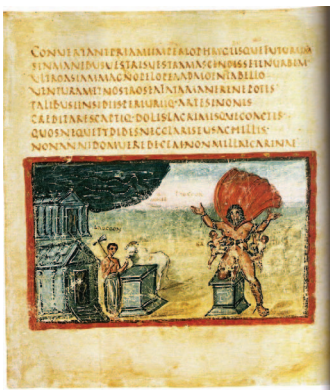 CONVERTANTPRIAMIIMPERIOPHRIGIBUSQUEFUTURUM
SINMANIBUSVESTRISVESTRAMASCENDISSETINURBEM
ULTROASIAMMAGNOPELOPEAADMOENIABELLO
VENTURAMETNOSTROSEAFATAMANERENEPOTES
TALIBUSINSIDIISPERIURIQ·ARTESINONIS
CREDITARESCAPTIQ·DOLISLACRIMISQUECOACTIS
QUOSNEQUETYDIDESNECLARISEUSACHILLES·
NONANNIDOMUEREDECEMNONMILLECARINAE
LAUCOON